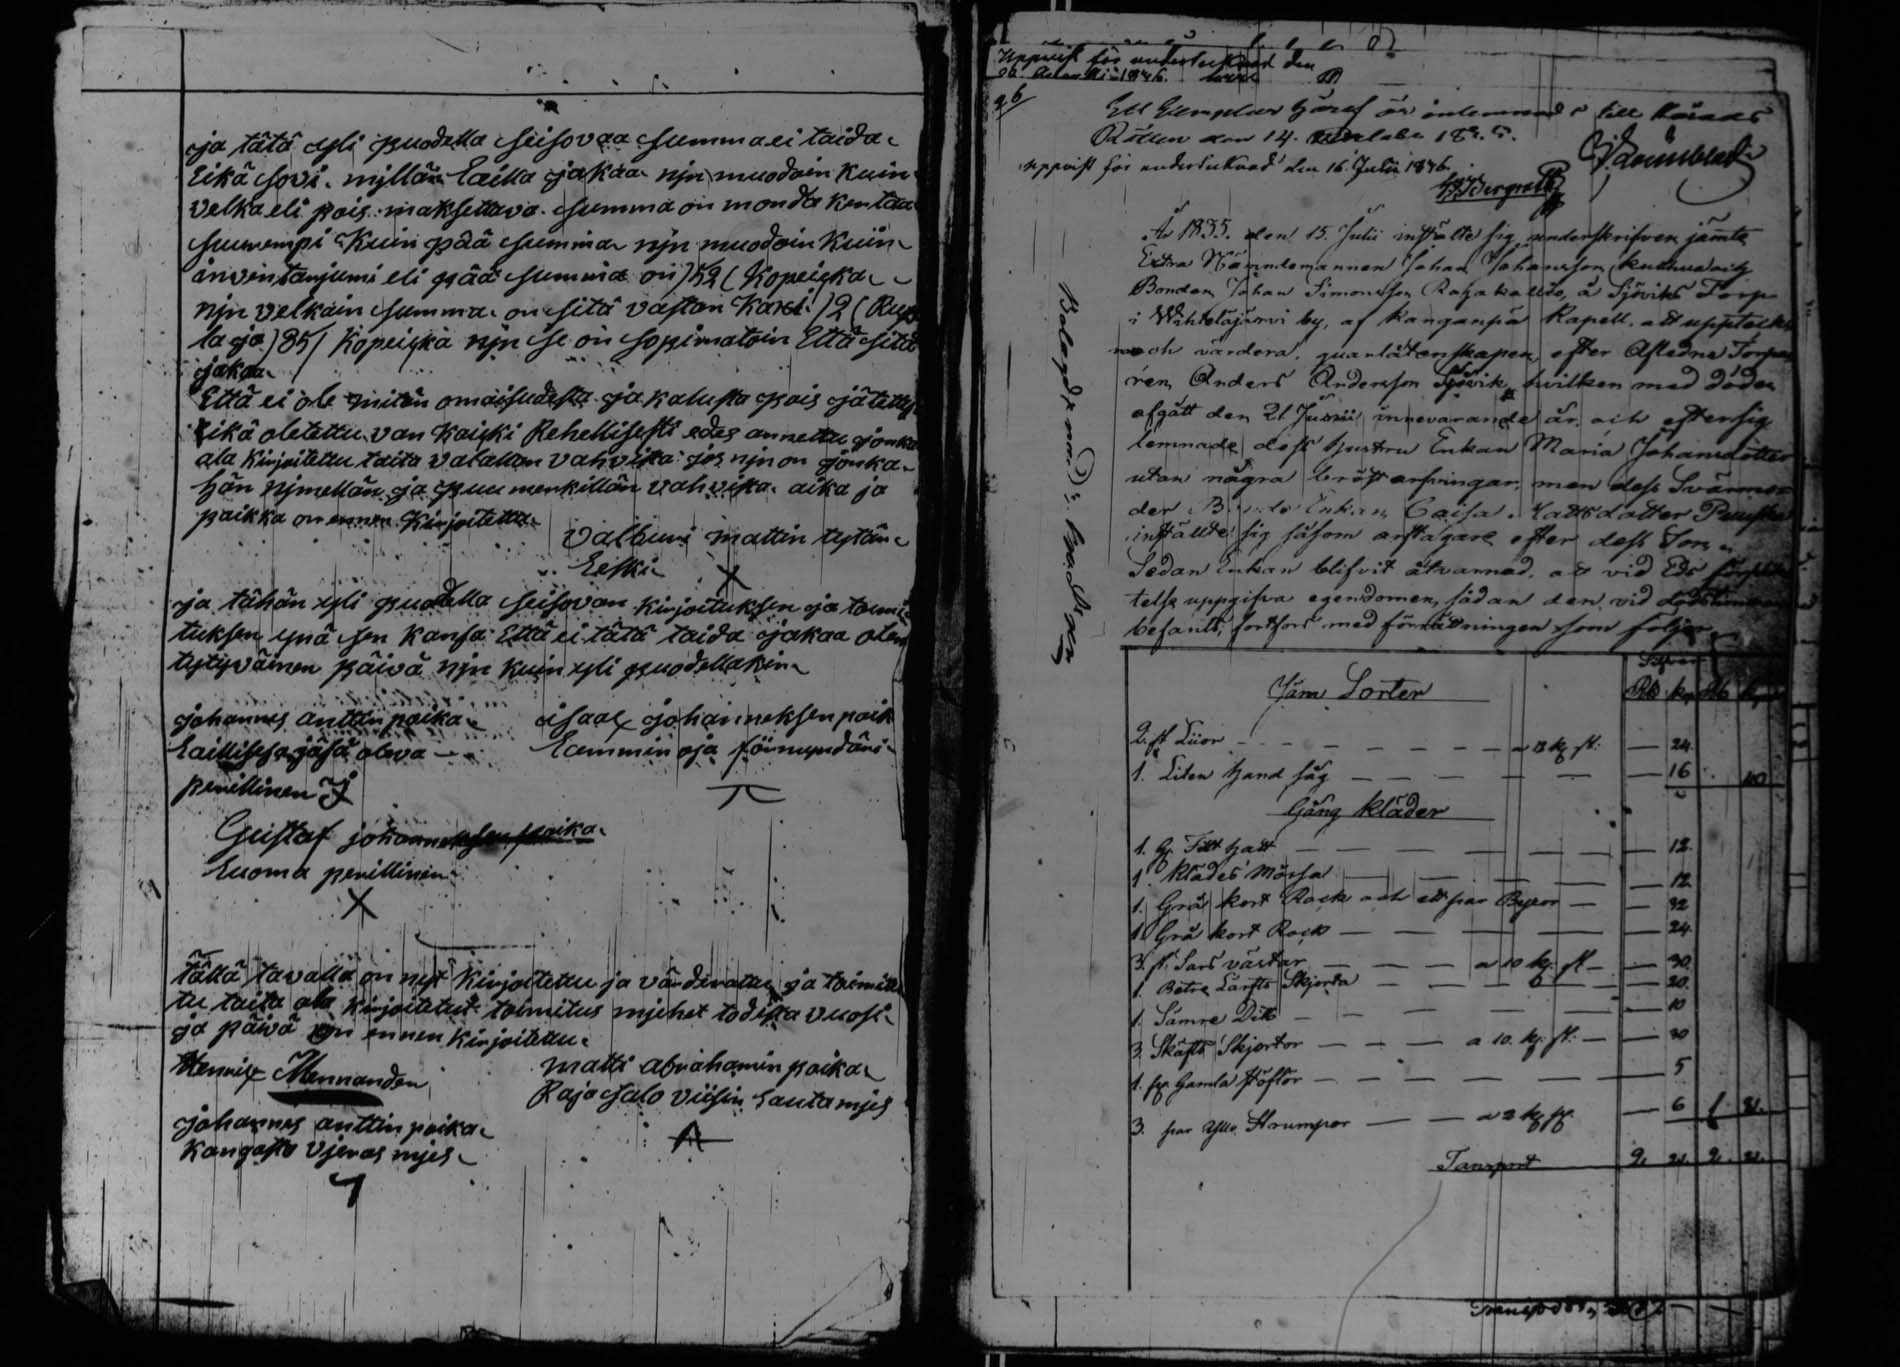 ja tätä yli puodella seisovaa summa ei taida
Eikä sovi millän lailla jakaa njn muodoin kuin
velka eli pois maksettava summa on monda kentaa
suurempi kuin pää summa njn muodoin kuin
inventarjumi eli pää summa on )52( kopeiska
njn velkain summa on sitä vastan kaxi )2( Rup
la ja )85/ kopeiska njn se on sopimatoin Että sitä
jakaa
Että ei ole mitän omaisudesta ja kalusta pois jätetty
Eikä oletettu van kaicki Rehellisesti edes annettu jonka
ala kirjoitettu taita valallan vahvista jos njn on jonka
hän njmellän ja puu merkillän vahvista aika ja
paikka on ennen kirjoitettu
valburi mattin tytän
Leski X
ja tähän yli puodella seisovan kirjoituksen ja toimi
tuksen ynä sen kansa Että ei tätä taida jakaa olen
tytyväinen päivä njn kuin yli puodellakin
johannes anttin poika
Laillisesa jäsä oleva
perillinen
isaac johanneksen poik
Lammin oja förmyndäri
Gustaf johanneksen poika
Luoma perillinen
X
Tällä tavalla on nyt kirjoitettu ja värderattu ja toimite
tu taita ala kirjoitetut toimitus mjehet todista vuosi
ja päivä on ennen kirjoitettu
Henric Mennanden
matti abrahamin poika
Rajasalo viisin Lautamjes
johannes anttin poika
kangasto vjeras mjes
Uppvist för undertecknad den
26
Ett Exemplar häraf är inlemnad till Härads
Rätten den 14.
uppvist för undertecknad den 16. Julii 1846.
År 1835. den 15. Julii inställte sig underskrifven jämte
Extra Nämndemannen Johan Johansson
Bonden Johan Simonsson å Sjöviks Torp
i by, af Kanganpä Kapell, att uppteckna
och värdera, qvarlåtenskapen efter Aflidne Torpa
ren Anders Andersson Sjövik, hvilken med döden
afgått den 21. innevarande år, och efter sig
lemnade dess hustru Enkan Maria Johansdotter
utan några bröstarfvingar, men dess Svärmo
der Enkan Caisa Mattsdotter
inställte sig såsom arftagare efter dess Son
Sedan Enkan blifvit åtvarnad, att vid Eds
telse uppgifva egendomen, sådan den vid dödstimman
befants, fortfors med förrättningen som följer
Silfver
Järn Sorter
Rb. kp. Rb. kp.
2. st Liior a 12 kp st. 24.
1. Liten hand såg 16 40
Gång kläder
1. Filt hatt 12.
1. Klädes Mössa 12.
1. Grå kort Rock och ett par Byxor 32
1. Grå kort Rock 24.
3. st. Sars västar a 10 kp. st. 30.
1. Bätre Lärfts Skjorta 20.
1. Sämre Dito 10
3. Skäfts Skjortor a 10. kp. st. 30
1. pr. Gamla stöflor 5
3. par ylle Strumpor a 2 kp pr. 6 1 81.
Transport 2. 21. 2. 21.